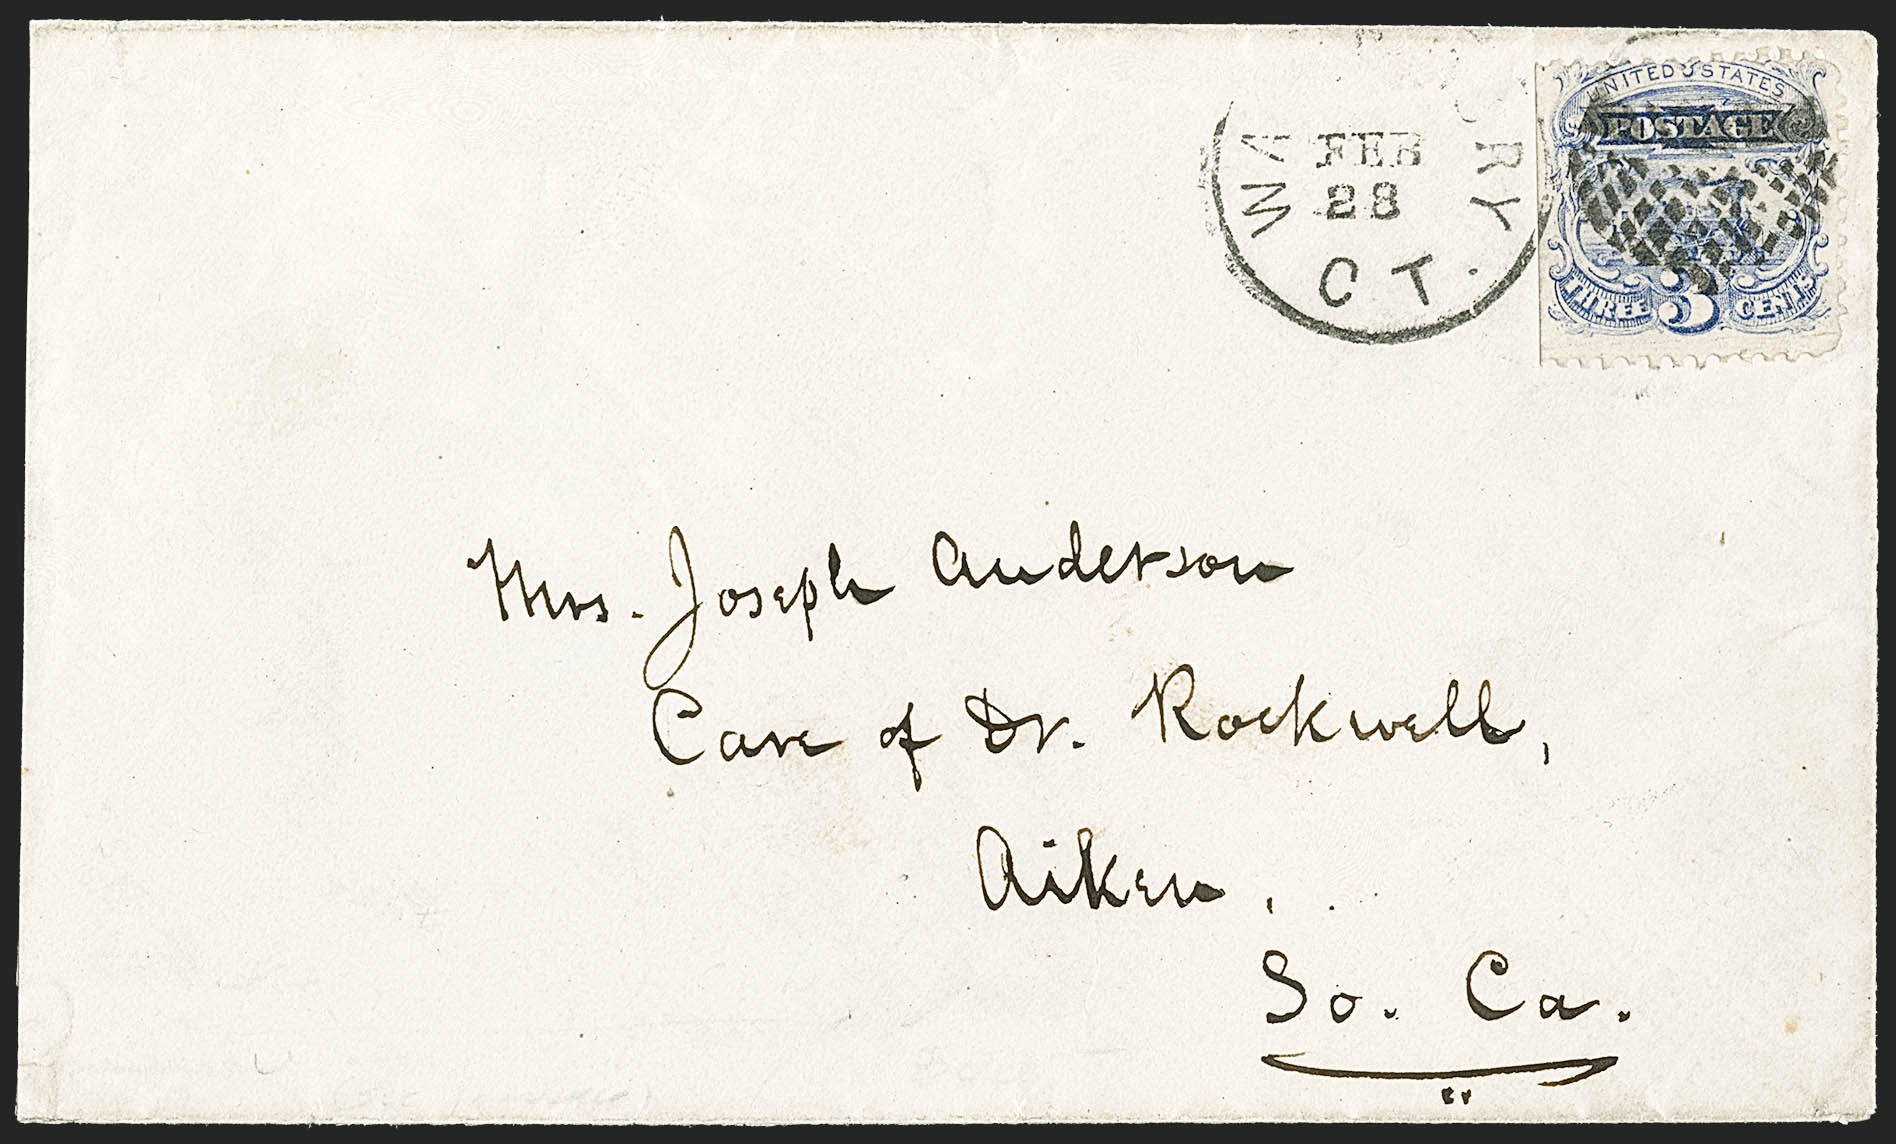 UNITED STATES
POSTAGE
THREE 3 CENTS
FEB
28
CT.
Mrs. Joseph Anderson
Care of Dr. Rockwell,
Aiken,
So. Ca.